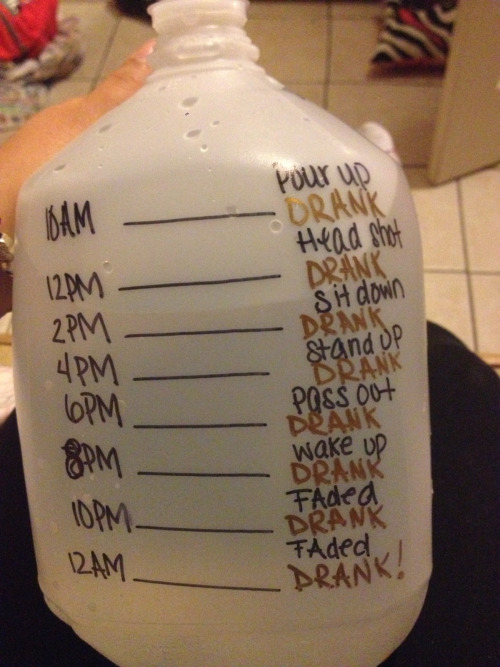 Pour up
10AM DRANK
Head shot
12PM DRANK
sit down
2PM DRANK
stand up
4PM DRANK
pass out
6PM DRANK
wake up
8PM DRANK
FAded
10PM DRANK
FAded
12AM DRANK!